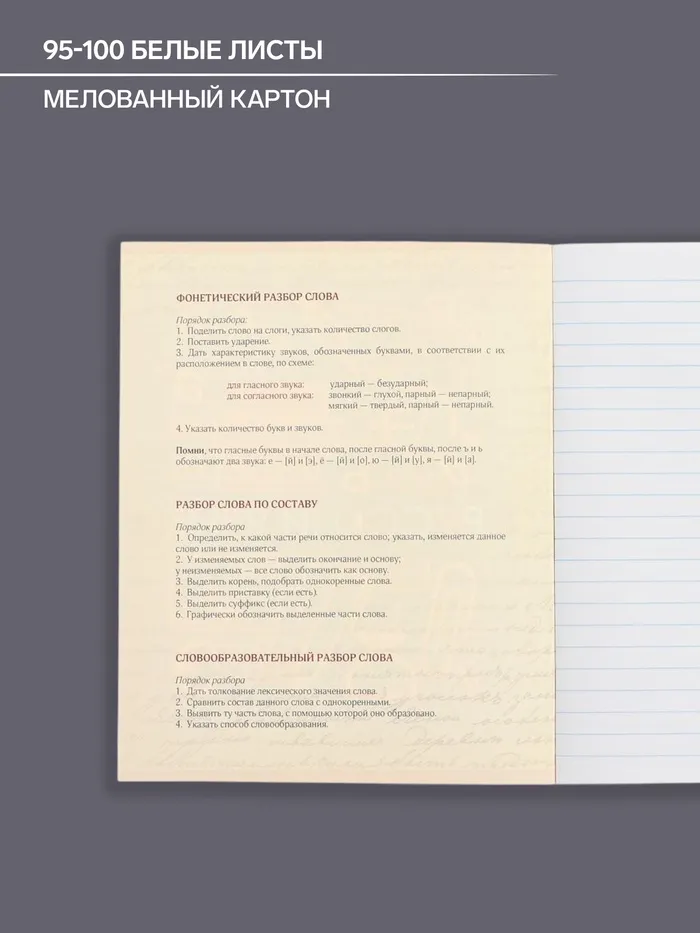 95-100 БЕЛЫЕ ЛИСТЫ
МЕЛОВАННЫЙ КАРТОН
ФОНЕТИЧЕСКИЙ РАЗБОР СЛОВА
Порядок разбора:
1. Поделить слово на слоги, указать количество слогов.
2. Поставить ударение.
3. Дать характеристику звуков, обозначенных буквами, в соответствии с их
расположением в слове, по схеме:
для гласного звука: ударный — безударный;
для согласного звука: звонкий — глухой, парный — непарный;
мягкий — твердый, парный — непарный.
4. Указать количество букв и звуков.
Помни, что гласные буквы в начале слова, после гласной буквы, после ъ и ь
обозначают два звука: е — [й] и [э], ё — [й] и [о], ю — [й] и [у], я — [й] и [а].
РАЗБОР СЛОВА ПО СОСТАВУ
Порядок разбора
1. Определить, к какой части речи относится слово; указать, изменяется данное
слово или не изменяется.
2. У изменяемых слов — выделить окончание и основу;
у неизменяемых — все слово обозначить как основу.
3. Выделить корень, подобрать однокоренные слова.
4. Выделить приставку (если есть).
5. Выделить суффикс (если есть).
6. Графически обозначить выделенные части слова.
СЛОВООБРАЗОВАТЕЛЬНЫЙ РАЗБОР СЛОВА
Порядок разбора
1. Дать толкование лексического значения слова.
2. Сравнить состав данного слова с однокоренными.
3. Выявить ту часть слова, с помощью которой оно образовано.
4. Указать способ словообразования.